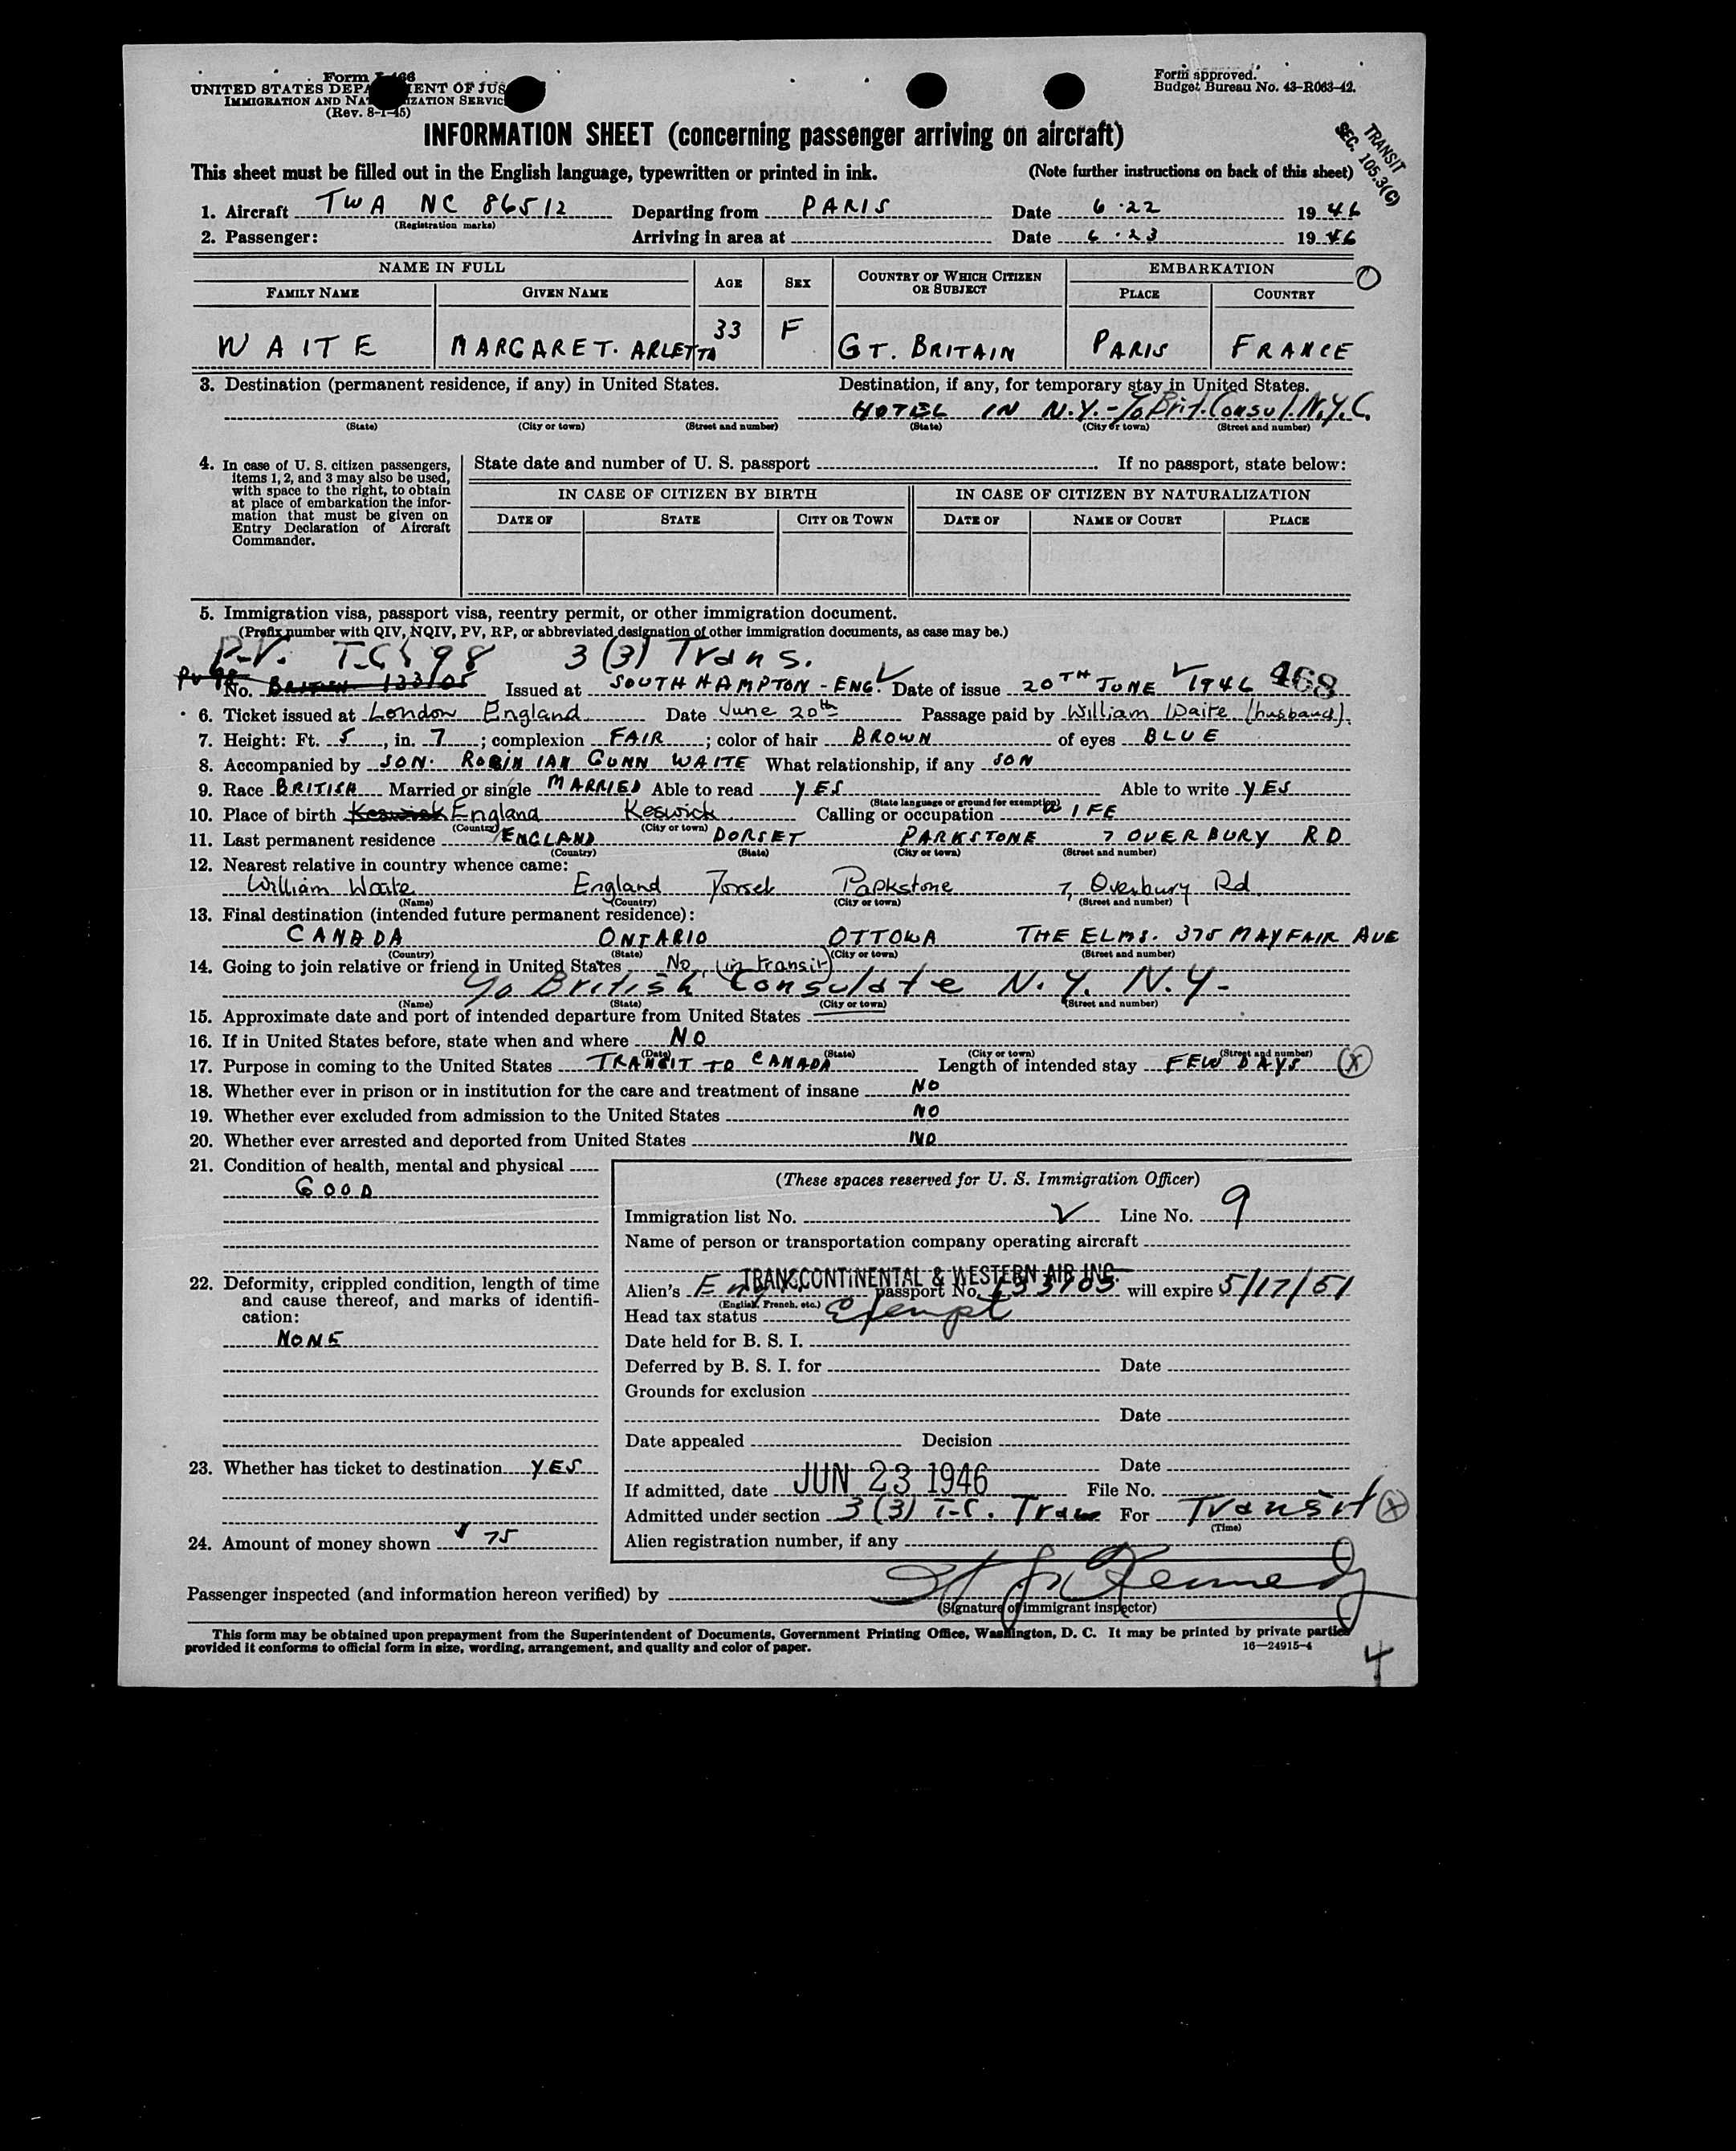 Form I-466
UNITED STATES DEPARTMENT OF JUS
IMMIGRATION AND NATURALIZATION SERVIC
(Rev. 8-1-45)
Form approved.
Budget Bureau No. 43-R063-42.
INFORMATION SHEET (concerning passenger arriving on aircraft)
TRANSIT
SEC. 105.3(C)
This sheet must be filled out in the English language, typewritten or printed in ink. (Note further instructions on back of this sheet)
1. Aircraft TWA NC 86512 Departing from PARIS Date 6.22 1946
(Registration marks)
2. Passenger: Arriving in area at Date 6.23 1946
NAME IN FULL AGE SEX COUNTRY OF WHICH CITIZEN OR SUBJECT EMBARKATION
FAMILY NAME GIVEN NAME PLACE COUNTRY
WAITE MARGARET. ARLETTA 33 F GT. BRITAIN PARIS FRANCE
3. Destination (permanent residence, if any) in United States. Destination, if any, for temporary stay in United States.
HOTEL IN N.Y. - c/o Brit. Consul. N.Y.C.
(State) (City or town) (Street and number) (State) (City or town) (Street and number)
4. In case of U. S. citizen passengers, items 1, 2, and 3 may also be used, with space to the right, to obtain at place of embarkation the information that must be given on Entry Declaration of Aircraft Commander.
State date and number of U. S. passport If no passport, state below:
IN CASE OF CITIZEN BY BIRTH IN CASE OF CITIZEN BY NATURALIZATION
DATE OF STATE CITY OR TOWN DATE OF NAME OF COURT PLACE
5. Immigration visa, passport visa, reentry permit, or other immigration document.
(Prefix number with QIV, NQIV, PV, RP, or abbreviated designation of other immigration documents, as case may be.)
P.V. 3 (3) Trans.
No. BRITISH 133105 Issued at SOUTHHAMPTON - ENG. Date of issue 20TH JUNE 1946 468
6. Ticket issued at London England Date June 20th Passage paid by William Waite (husband).
7. Height: Ft. 5, in. 7; complexion FAIR; color of hair BROWN of eyes BLUE
8. Accompanied by SON. ROBIN IAN GUNN WAITE What relationship, if any SON
9. Race BRITISH Married or single MARRIED Able to read YES Able to write YES
(State language or ground for exemption)
10. Place of birth Keswick England Keswick Calling or occupation WIFE
(Country) (City or town)
11. Last permanent residence ENGLAND DORSET PARKSTONE 7 OVERBURY RD
(Country) (State) (City or town) (Street and number)
12. Nearest relative in country whence came:
William Waite England Dorset Parkstone 7, Overbury Rd
(Name) (Country) (City or town) (Street and number)
13. Final destination (intended future permanent residence):
CANADA ONTARIO OTTOWA THE ELMS. 375 MAYFAIR AVE
(Country) (State) (City or town) (Street and number)
14. Going to join relative or friend in United States No. (in transit)
c/o British Consulate N.Y. N.Y.
(Name) (State) (City or town) (Street and number)
15. Approximate date and port of intended departure from United States
16. If in United States before, state when and where NO
(Date) (State) (City or town) (Street and number)
17. Purpose in coming to the United States TRANSIT TO CANADA Length of intended stay FEW DAYS (X)
18. Whether ever in prison or in institution for the care and treatment of insane NO
19. Whether ever excluded from admission to the United States NO
20. Whether ever arrested and deported from United States NO
21. Condition of health, mental and physical
GOOD
22. Deformity, crippled condition, length of time and cause thereof, and marks of identification:
NONE
23. Whether has ticket to destination YES
24. Amount of money shown $ 75
(These spaces reserved for U. S. Immigration Officer)
Immigration list No. Line No. 9
Name of person or transportation company operating aircraft
TRANSCONTINENTAL & WESTERN AIR INC.
Alien's Eng. passport No. 133105 will expire 5/17/51
(English, French, etc.)
Head tax status Exempt
Date held for B. S. I.
Deferred by B. S. I. for Date
Grounds for exclusion
Date
Date appealed Decision
Date
If admitted, date JUN 23 1946 File No.
Admitted under section 3 (3) For Transit (X)
(Time)
Alien registration number, if any
Passenger inspected (and information hereon verified) by Kennedy
(Signature of immigrant inspector)
This form may be obtained upon prepayment from the Superintendent of Documents, Government Printing Office, Washington, D. C. It may be printed by private parties
provided it conforms to official form in size, wording, arrangement, and quality and color of paper. 16—24915-4
4